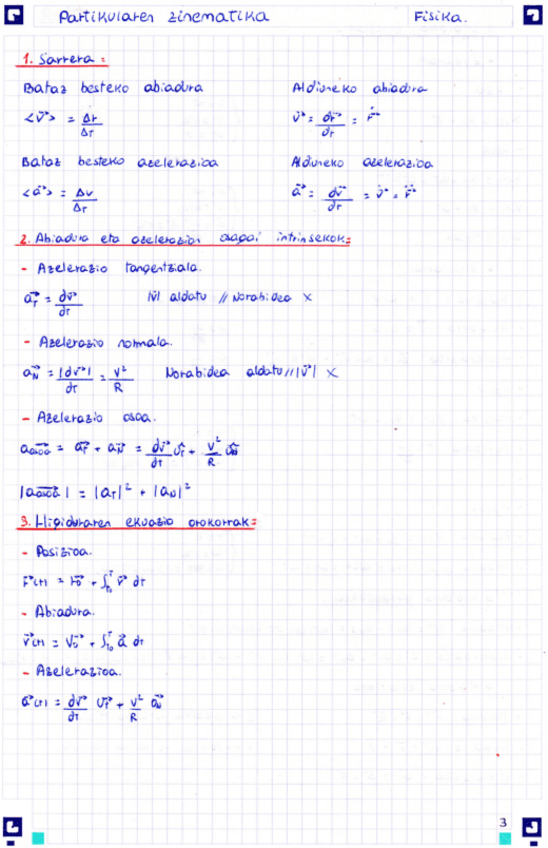 Partikularen zinematika Fisika.
1. Sarrera =
Bataz besteko abiadura Aldiuneko abiadura
<v⃗> = Δr/Δt v⃗ = dr⃗/dt = ṙ⃗
Bataz besteko azelerazioa Aldiuneko azelerazioa
<a⃗> = Δv/Δt a⃗ = dv⃗/dt = v̇⃗ = r̈⃗
2. Abiadura eta azelerazioan osagai intrinsekok =
- Azelerazio tangentziala.
a⃗T = dv⃗/dt |v| aldatu // Norabidea X
- Azelerazio normala.
a⃗N = |dv⃗|/dt = v²/R Norabidea aldatu // |v⃗| X
- Azelerazio osoa.
a⃗osoa = a⃗T + a⃗N = dv⃗/dt u⃗T + v²/R u⃗N
|a⃗osoa| = |aT|² + |aN|²
3. Higiduraren ekuazio orokorrak =
- Posizioa.
r⃗(t) = r⃗0 + ∫t0^t v⃗ dt
- Abiadura.
v⃗(t) = v⃗0 + ∫t0^t a⃗ dt
- Azelerazioa.
a⃗(t) = dv⃗/dt u⃗T + v²/R a⃗N
3